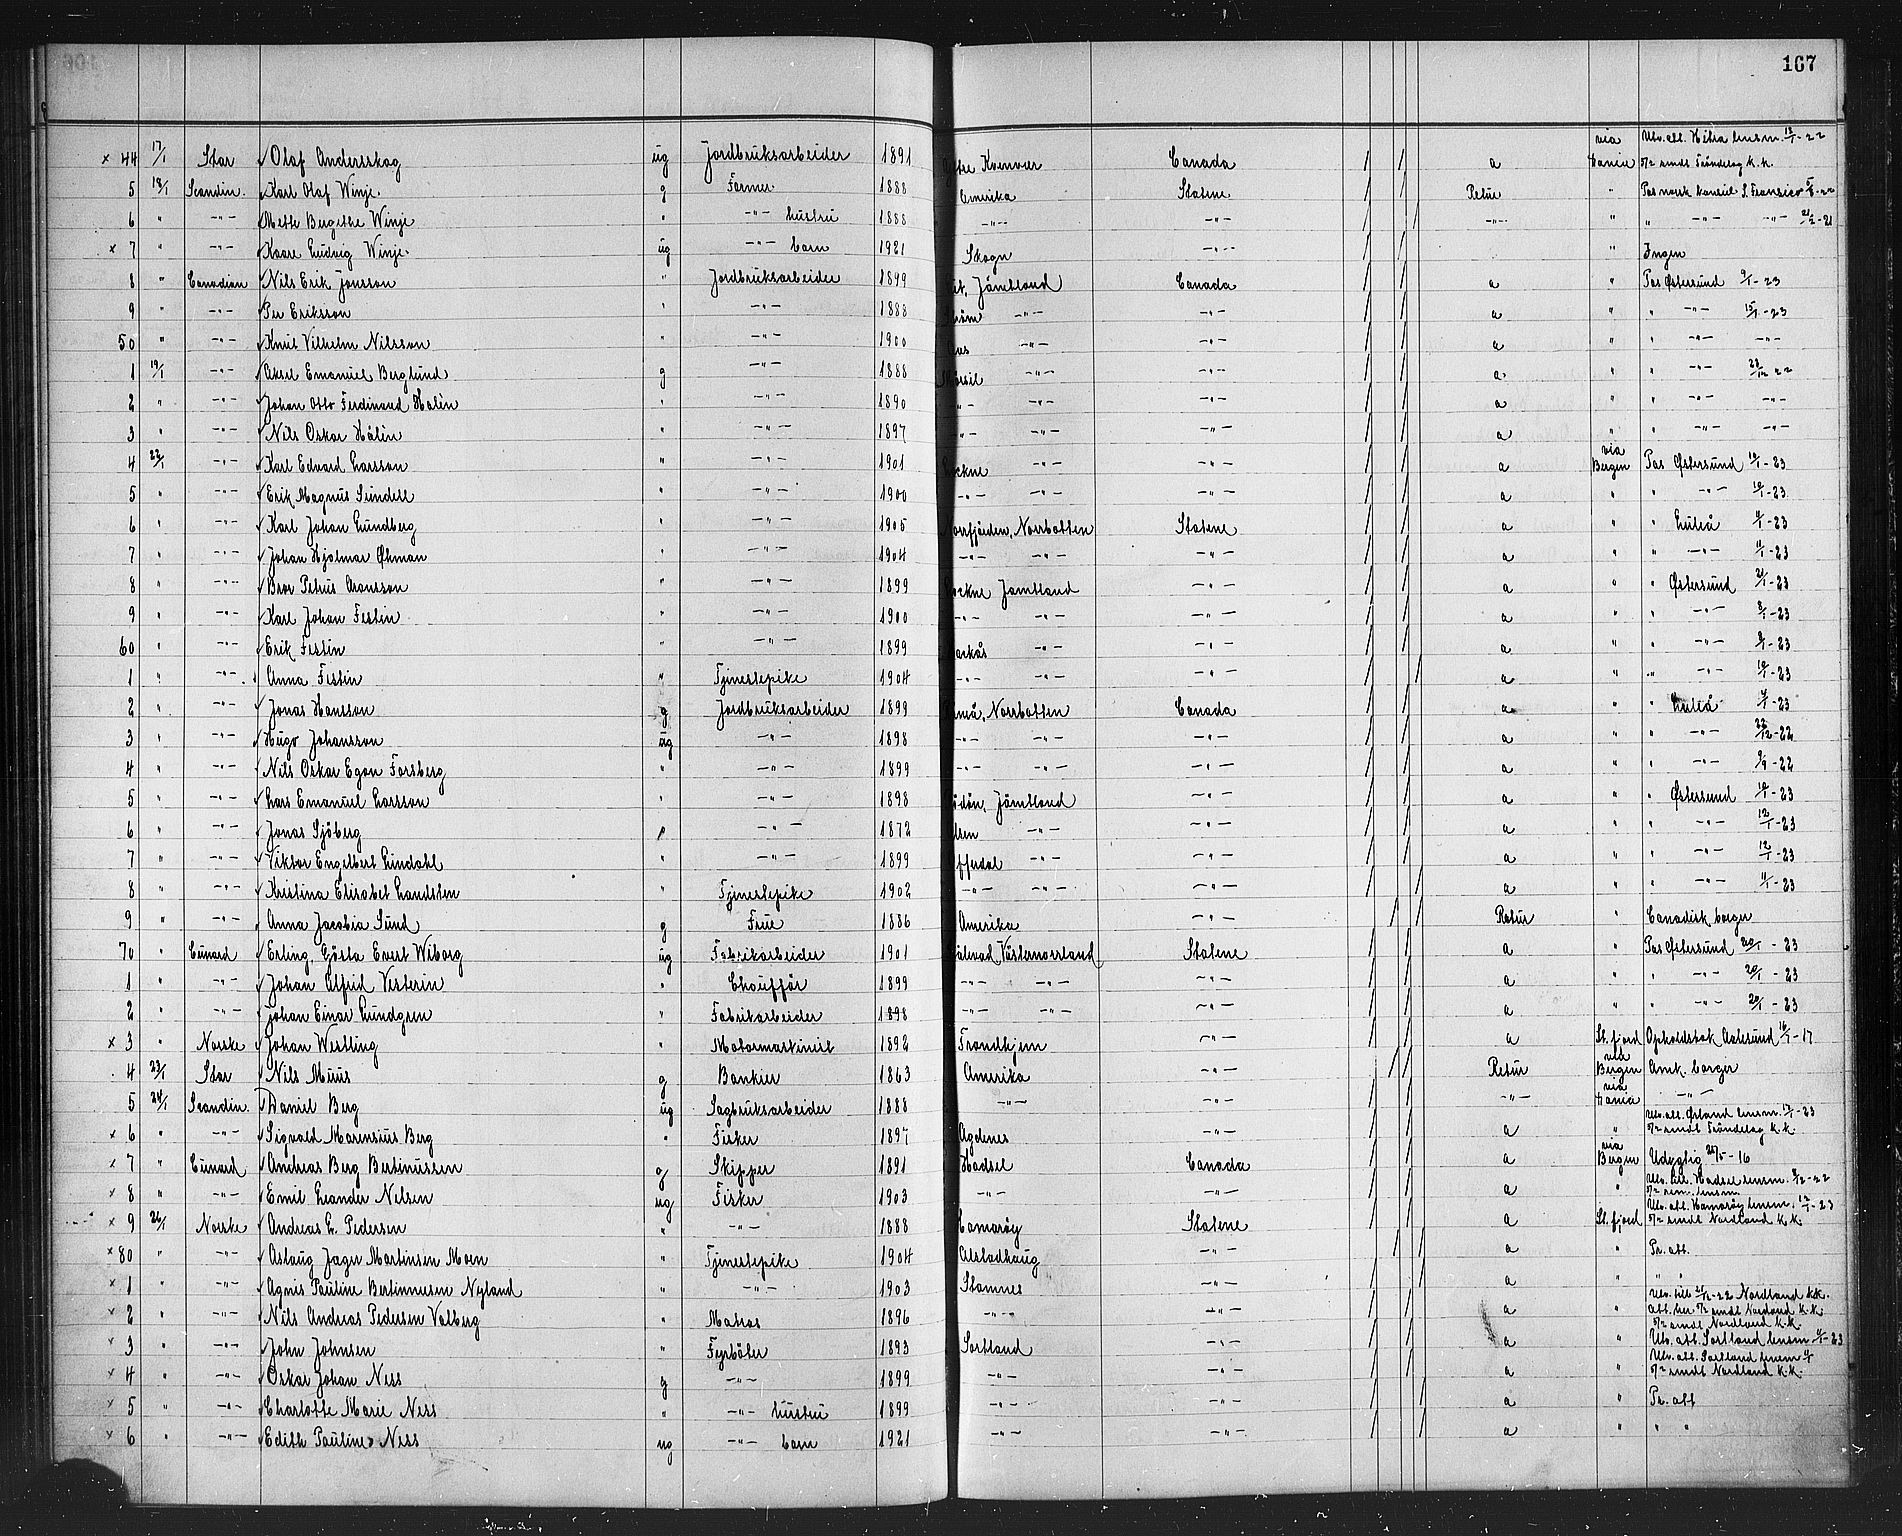 167
× 44 17/1 Star Olaf Andersskog ug Jordbruksarbeider 1891 Kvenvær Canada a via Hanië Utv. att. Hitra lensm. 13/1-22 5/2 rmdt Tröndelag k.k.
5 18/1 Scandin. Karl Olaf Winje g Farmer 1888 Amerika Statene Retur " Pas norsk konsul S. Fransisco -22
6 " -"- Meth Bergethe Winje " -"- hustru 1888 -"- -"- -"- " " -"- -"- 21/2-21
× 7 " -"- Kaare Ludvig Winje ug -"- barn 1921 Skogn " Ingen
8 " Canadian Nils Erik Jonsson " Jordbruksarbeider 1899 Jämtland Canada a " Pas Østersund 9/1-23
9 " -"- Per Eriksson " -"- 1888 -"- -"- a " " -"- 15/1-23
50 " -"- Knut Vilhelm Nilsson " -"- 1900 -"- -"- a " " -"- -"-
1 19/1 -"- Aksel Emanuel Berglund g -"- 1888 Mörsil -"- -"- a " " -"- 23/12 22
2 " -"- Johan Otto Ferdinand Halin " -"- 1890 -"- -"- -"- a " " -"- -"-
3 " -"- Nils Oskar Hålin " -"- 1897 -"- -"- -"- a " " -"- -"-
4 22/1 -"- Karl Edvard Larsson " -"- 1901 Lockne -"- -"- a via Bergen Pas Østersund 10/1-23
5 " -"- Erik Magnus Sundell " -"- 1900 -"- -"- -"- a " " -"- 10/1-23
6 " -"- Karl Johan Lundberg " -"- 1905 Norrfjärden, Norrbotten Statene a " " Luleå 11/1-23
7 " -"- Johan Hjalmar Øhman " -"- 1904 -"- -"- -"- a " " -"- 11/1-23
8 " -"- Bror Petrus Aronsson " -"- 1899 Lockne Jämtland -"- a " " Østersund 21/1-23
9 " -"- Karl Johan Festin " -"- 1900 -"- -"- -"- a " " -"- 8/1-23
60 " -"- Erik Festin " -"- 1899 -"- -"- a " " -"- 8/1-23
1 " -"- Anna Festin " Tjenestepike 1904 -"- -"- -"- a " " -"- 10/1-23
2 " -"- Jonas Hansson g Jordbruksarbeider 1899 Norrbotten Canada a " " Luleå 11/1-23
3 " -"- Hugo Johansson ug -"- 1898 -"- -"- -"- a " " -"- 22/12-22
4 " -"- Nils Oskar Egon Forsberg " -"- 1899 -"- -"- -"- a " " -"- -22
5 " -"- Lars Emanuel Larsson " -"- 1898 Rödön, Jämtland -"- a " " Østersund 10/1-23
6 " -"- Jonas Sjöberg " -"- 1872 -"- -"- a " " -"- 12/1-23
7 " -"- Viktor Engelbert Lindahl " -"- 1899 Offerdal -"- -"- a " " -"- 12/1-23
8 " -"- Kristina Elisabet Landsten " Tjenestepike 1902 -"- -"- -"- a " " -"- 11/1-23
9 " -"- Anna Jacobia Sund g Frue 1886 Amerika -"- Retur " Canadisk borger
70 " Cunard Erling, Gösta Evert Wiborg ug Fabrikarbeider 1901 Själevad, Västernorrland Statene a " Pas Østersund 20/1-23
1 " -"- Johan Alfrid Vesterin " Chouffør 1899 -"- -"- -"- a " " -"- 20/1-23
2 " -"- Johan Einar Lundgren " Fabrikarbeider 1898 -"- -"- -"- a " " -"- 20/1-23
× 3 " Norske Johan Westling " Motormaskinist 1892 Trondhjem -"- a St. fjord Opholdsbok Aalesund 16/1-17
4 23/1 Star Nils Muus g Bankier 1863 Amerika -"- Retur via Bergen Amk. borger
5 24/1 Scandin. Daniel Berg ug Sagbruksarbeider 1888 -"- -"- -"- via Hanië -"-
× 6 " -"- Sigvald Marensius Berg " Fisker 1897 Agdenes -"- a " Utv. att. Ørland lensm. 17/1-23 5/2 rmdt Tröndelag k.k.
× 7 " Cunard Andreas Berg Bertinussen g Skipper 1891 Hadsel Canada a via Bergen Udygtig 26/5-16
× 8 " -"- Emil Leander Nilsen ug Fisker 1903 -"- -"- a " Utv. till. Hadsel lensm. 8/12-22
× 9 26/1 Norske Andreas E. Pedersen " -"- 1888 Hamarøy Statene a St. fjord Utv. att. Hamarøy lensm. 12/1-23 5/2 rmdt Nordland k.k.
× 80 " -"- Aslaug Jagn Martinsen Moen " Tjenestepike 1904 Alstadhaug -"- a " Pr. att.
× 1 " -"- Agnis Pauline Bertinnusen Nyland " -"- 1903 Stamnes -"- a " " "
× 2 " -"- Nils Andreas Pedersen Valberg " Matros 1896 -"- -"- a " Utv. till. 21/12-22 Nordland k.k. 5/2 rmdt Nordland k.k.
× 3 " -"- John Johnsen " Fyrbøter 1893 Sortland -"- a " 5/2 rmdt Nordland k.k. Utv. att. Sortland lensm -23
× 4 " -"- Oskar Johan Ness g -"- 1899 -"- -"- a " Utv. att. Sortland lensm 5/2 rmdt Nordland k.k.
× 5 " -"- Charlotte Marie Ness " -"- hustru 1899 -"- -"- a " Pr. att
× 6 " -"- Edith Pauline Ness ug -"- barn 1921 -"- -"- a " " "